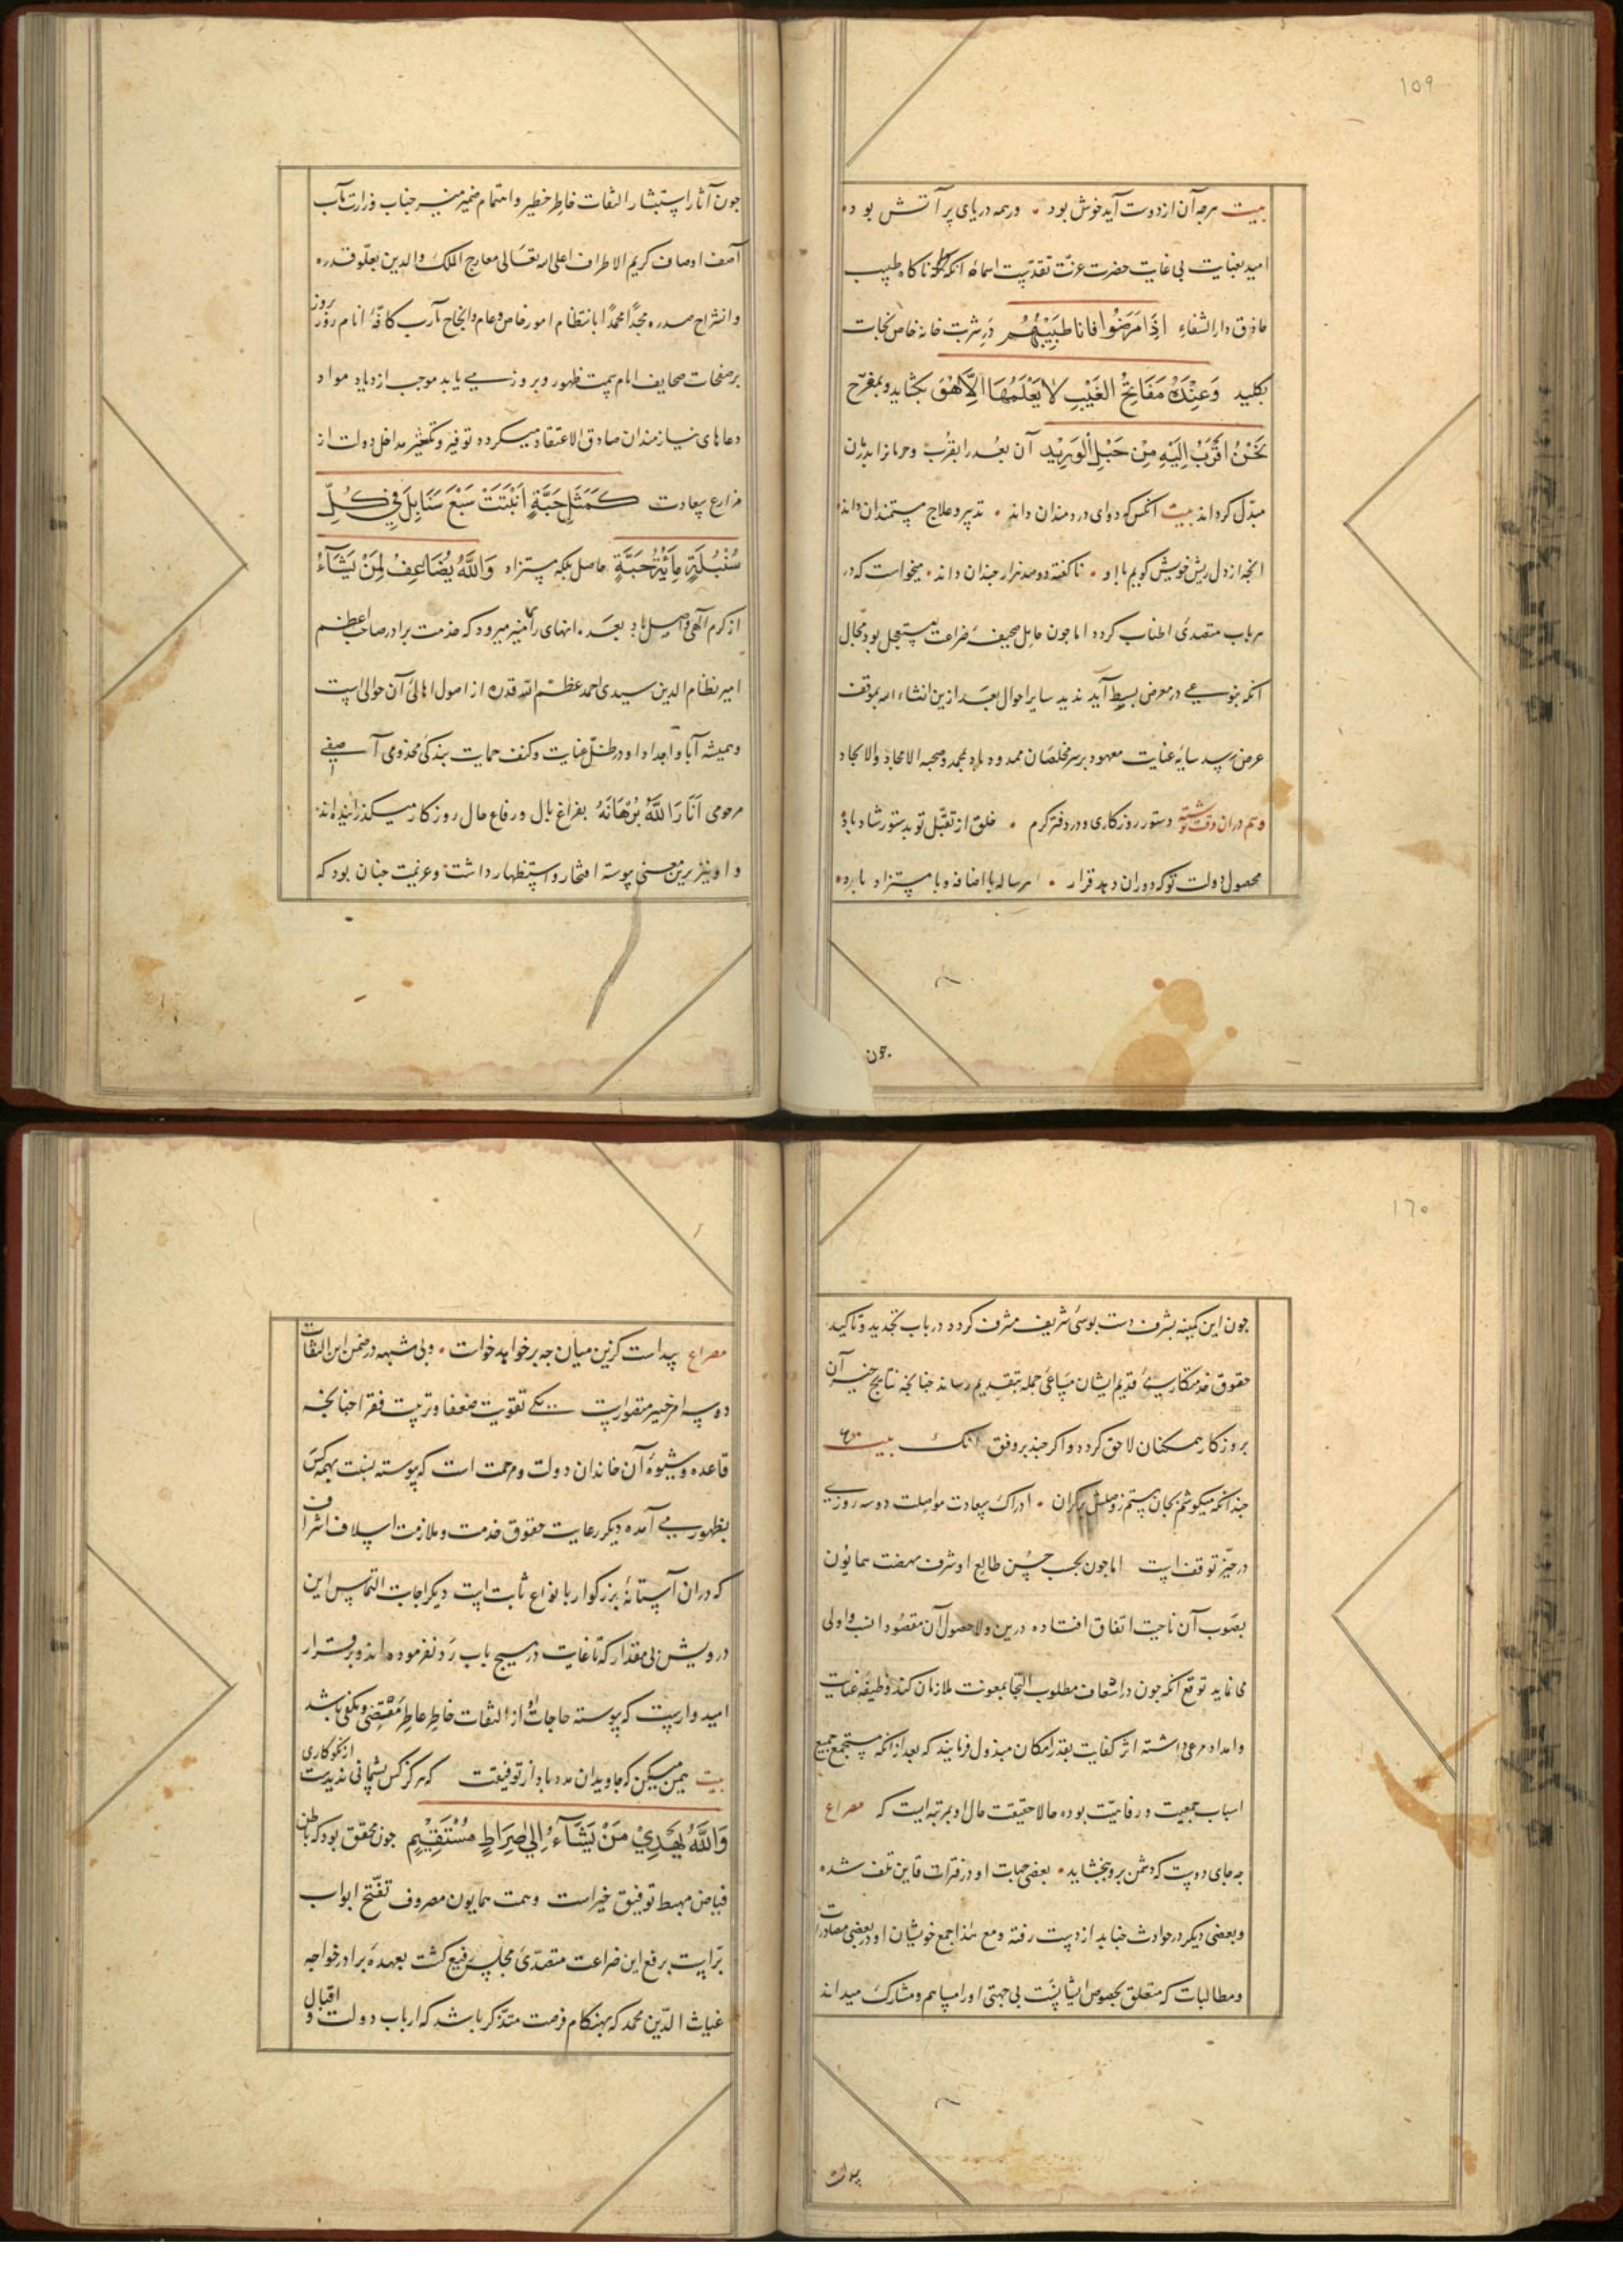 ۱۵۹
بیت هرچه آن از دوست آید خوش بود ۰ ور همه دریای پر آتش بود ۰
امید بعنایت بی غایت حضرت عزت تقدست اسماؤه آنکه ناکاه طبیب
حاذق دار الشفاء اِذَا مَرَضُوا فانا طَبِیْبُهُم در شربت خانه خاص نجات
بکلید وَعِنْدَهُ مَفَاتِحُ الغَیْبِ لا یَعْلَمُهَا اِلَّا هُوَ بکشاید و بمفرح
نَحْنُ اَقْرَبُ اِلَیْهِ مِنْ حَبْلِ الْوَرِیْدِ آن بعد را بقرب و حرمانرا بدان
مبدل کرداند بیت آنکس که دوای دردمندان داند ۰ تدبیر و علاج مستمندان داند
آنچه از دل ریش خویش کویم با او ۰ ناکفته دو صد هزار چندان داند ۰ میخواست که در
هر باب متصدی اطناب کردد اما چون حامل صحیفه ضراعت مستعجل بود مجال
آنکه بنوعی در معرض بسط آید ندید سایر احوال بعد ازین انشاء الله بموقف
عرض رسد سایه عنایت معهود بر سر مخلصان ممدود باد بمحمد و صحبه الامجاد والانجاد
دستور روزکاری و در دفتر کرم ۰ خلق از تقبل تو بدستور شاد باد
محصول دولت تو که دوران دهد قرار ۰ هر ساله با اضافه و با مستزاد باد ۰
چون
چون آثار استبشار التفات خاطر خطیر و اهتمام ضمیر منیر جناب وزارت مآب
آصف اوصاف کریم الاطراف اعلی الله تعالی معارج الملک والدین بعلو قدره
و انشراح صدره مجداً ممجداً بانتظام امور خاص و عام و انجاح مآرب کافه انام روز روز
بر صفحات صحایف ایام سمت ظهور و بروز می یابد موجب ازدیاد مواد
دعاهای نیازمندان صادق الاعتقاد میکردد توفیر و تکثیر مداخل دولت از
مزارع سعادت کَمَثَلِ حَبَّةٍ اَنْبَتَتْ سَبْعَ سَنَابِلَ فِی کُلِّ
سُنْبُلَةٍ مِائَةُ حَبَّةٍ حاصل بلکه مستزاد وَاللّٰهُ یُضَاعِفُ لِمَنْ یَشَآءُ
از کرم الهی واصل باد بعده انهای رای منیر میرود که خدمت برادر صاحب اعظم
امیر نظام الدین سیدی احمد عظم الله قدره از اصول اهالی آن حوالی است
و همیشه آبا و اجداد او در ظل عنایت و کنف حمایت بندکی مخدومی آصفی
مرحومی اَنَارَ اللّٰهُ بُرْهَانَهُ بفراغ بال و رفاع حال روزکار میکذرانیده اند
و او نیز برین معنی پیوسته افتخار و استظهار داشت و عزیمت چنان بود که
۱۶۰
چون این کمینه بشرف دست بوسی شریف مشرف کردد در باب تجدید و تاکید
حقوق خدمتکاری قدیم ایشان مساعی جمله بتقدیم رساند چنانچه نتایج خیر آن
بروزکار همکنان لاحق کردد و اکر چند بر وفق آنک بیت
چندانکه میکوشم بجان هستم ز وصلش برکران ۰ ادراک سعادت مواصلت دو سه روزی
در حیز توقف است اما چون بحسب حسن طالع او شرف نهضت همایون
بصوب آن ناحیت اتفاق افتاده درین ولا حصول آن مقصود انسب و اولی
می نماید توقع آنکه چون در اسعاف مطلوب التجا بمعونت ملازمان کند وظیفه عنایت
و امداد مرعی داشته اثر کفایت بقدر امکان مبذول فرمایند که بعد از آنکه مستجمع جمیع
اسباب جمعیت و رفاهیت بوده حالا حقیقت حال او بمرتبه ایست که مصراع
چه جای دوست که دشمن برو ببخشاید ۰ بعضی جهات او در فترات قاین تلف شده
و بعضی دیکر در حوادث جنابد از دست رفته و مع هذا جمع خویشان او در بعضی مصادرات
و مطالبات که متعلق بخصوص ایشانست بی جهتی او را مساهم و مشارک میدانند
مصراع پیداست کزین میان چه بر خواهد خواست ۰ و بی شبهه در ضمن این التفات
دو سه امر خیر متصورست یکی تقویت ضعفا و تربیت فقرا چنانچه
قاعده و شیوه آن خاندان دولت و مرحمت است که پیوسته نسبت بهمه کس
بظهور می آمده دیکر رعایت حقوق خدمت و ملازمت اسلاف اشراف
که در آن آستانه بزرکوار بانواع ثابت است دیکر اجابت التماس این
درویش بی مقدار که تا غایت در هیچ باب رد نفرموده اند و برقرار
امیدوارست که پیوسته حاجات او از التفات خاطر عاطر مقتضی و مکفی باشد
بیت همین میکن که جاویدان مدد باد از توفیقت که هرکز کس پشیمانی ندیدست از نکوکاری
وَاللّٰهُ یَهْدِیْ مَنْ یَشَآءُ اِلٰی صِرَاطٍ مُسْتَقِیْمٍ چون محقق بود که باطن
فیاض مهبط توفیق خیر است و همت همایون مصروف تفتح ابواب
براست برفع این ضراعت متصدی مجلس رفیع کشت بعهده برادر خواجه
غیاث الدین محمد که بهنکام فرصت متذکر باشد که ارباب دولت و اقبال